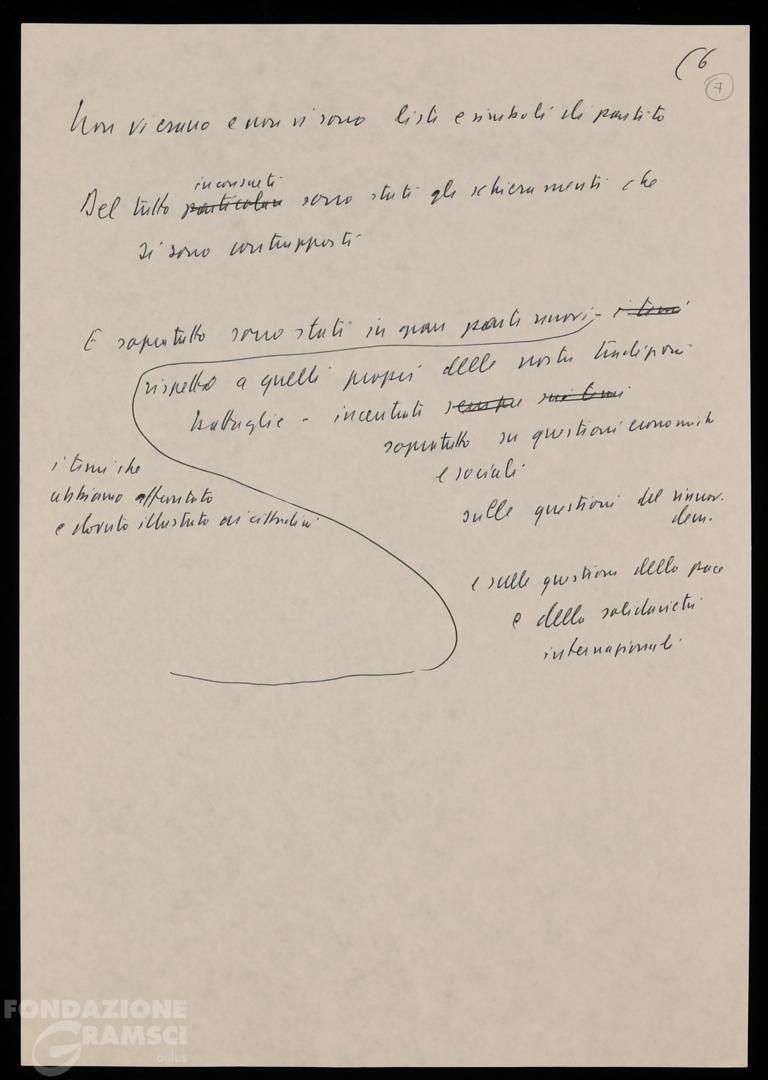 (6
7
Non vi erano e non vi sono liste e simboli di partito
inconsueti
Del tutto particolari sono stati gli schieramenti che
si sono contrapposti
E sopratutto sono stati in gran parte nuovi - i temi
rispetto a quelli propri delle nostre tradizioni
battaglie - incentrati sempre sui temi
sopratutto su questioni economiche
e sociali
i temi che
abbiamo affrontato
e dovuto illustrato ai cittadini
sulle questioni del rinnov.
dem.
e sulle questioni della pace
e della solidarietà
internazionale
FONDAZIONE
GRAMSCI
onlus